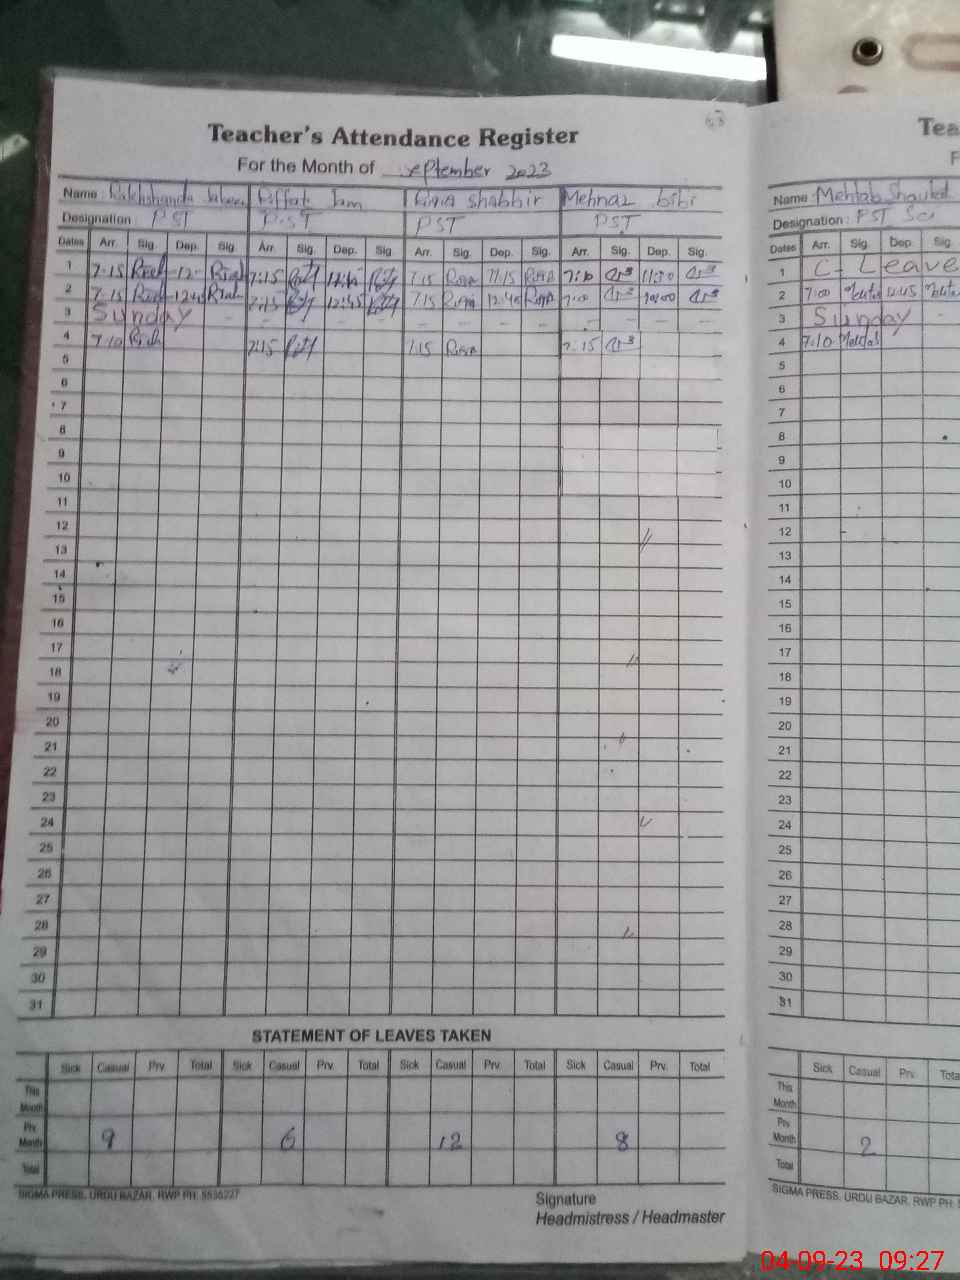 Teacher's Attendance Register
For the Month of September 2023
Name : Rakhshanda Riffat Shabbir Mehnaz bibi
Designation : PST PST PST PST
Dates Arr. Sig. Dep. Sig. Arr. Sig. Dep. Sig. Arr. Sig. Dep. Sig. Arr. Sig. Dep. Sig.
1 7:15 12 7:15 7:15 11:15 7:10 11:30
2 7:15 7:15 12:45 7:15 12:45 7:00
3 Sunday
4 7:10 7:15 7:15 7:15
5
6
7
8
9
10
11
12
13
14
15
16
17
18
19
20
21
22
23
24
25
26
27
28
29
30
31
STATEMENT OF LEAVES TAKEN
Sick Casual Prv. Total Sick Casual Prv. Total Sick Casual Prv. Total Sick Casual Prv. Total
This Month
Prv. Month 9 6 12 8
Total
SIGMA PRESS. URDU BAZAR. RWP PH: 5535227
Signature
Headmistress / Headmaster
Tea
F
Name : Mehtab Shaukat
Designation : PST
Dates Arr. Sig. Dep. Sig.
1 C- Leave
2 7:00 12:45
3 Sunday
4 7:10
5
6
7
8
9
10
11
12
13
14
15
16
17
18
19
20
21
22
23
24
25
26
27
28
29
30
31
Sick Casual Prv. Tota
This Month
Prv. Month 2
Total
SIGMA PRESS. URDU BAZAR. RWP PH:
04-09-23 09:27